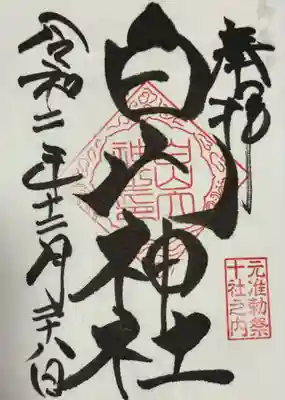 奉拝
白山神社
元准勅祭
十社之内
令和二年十二月二十八日